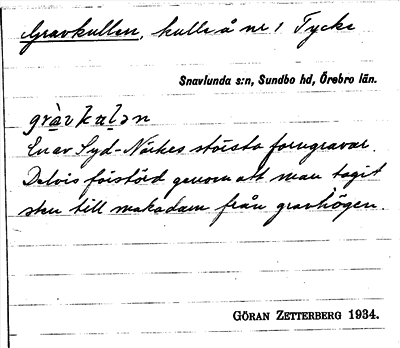 Gravkullen, kulle å nr 1 Tycke
Snavlunda s:n, Sundbo hd, Örebro län.
gràvkulən
En av Syd-Närkes största forngravar.
Delvis förstörd genom att man tagit
sten till makadam från gravhögen.
GÖRAN ZETTERBERG 1934.